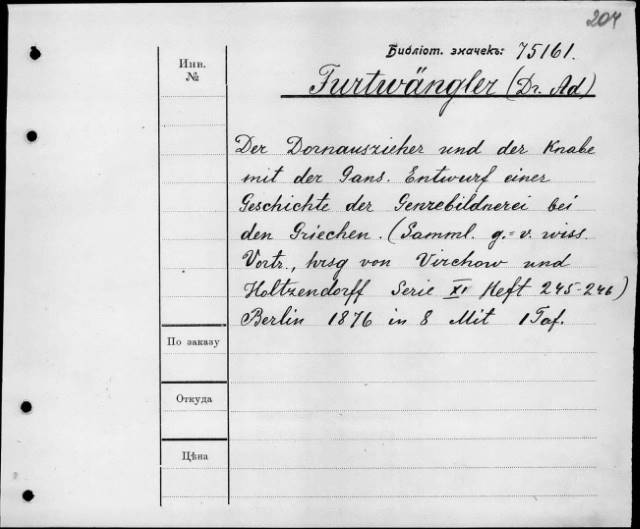 204
Библіот. значекъ: 75161.
Инв.
№
Furtwängler (Dr. Ad)
Der Dornauszieher und der Knabe
mit der Gans. Entwurf einer
Geschichte der Genrebildnerei bei
den Griechen. (Samml. g.=v. wiss.
Vortr., hrsg von Virchow und
Holtzendorff Serie XI Heft 245-246)
Berlin 1876 in 8 Mit 1 Taf.
По заказу
Откуда
Цѣна